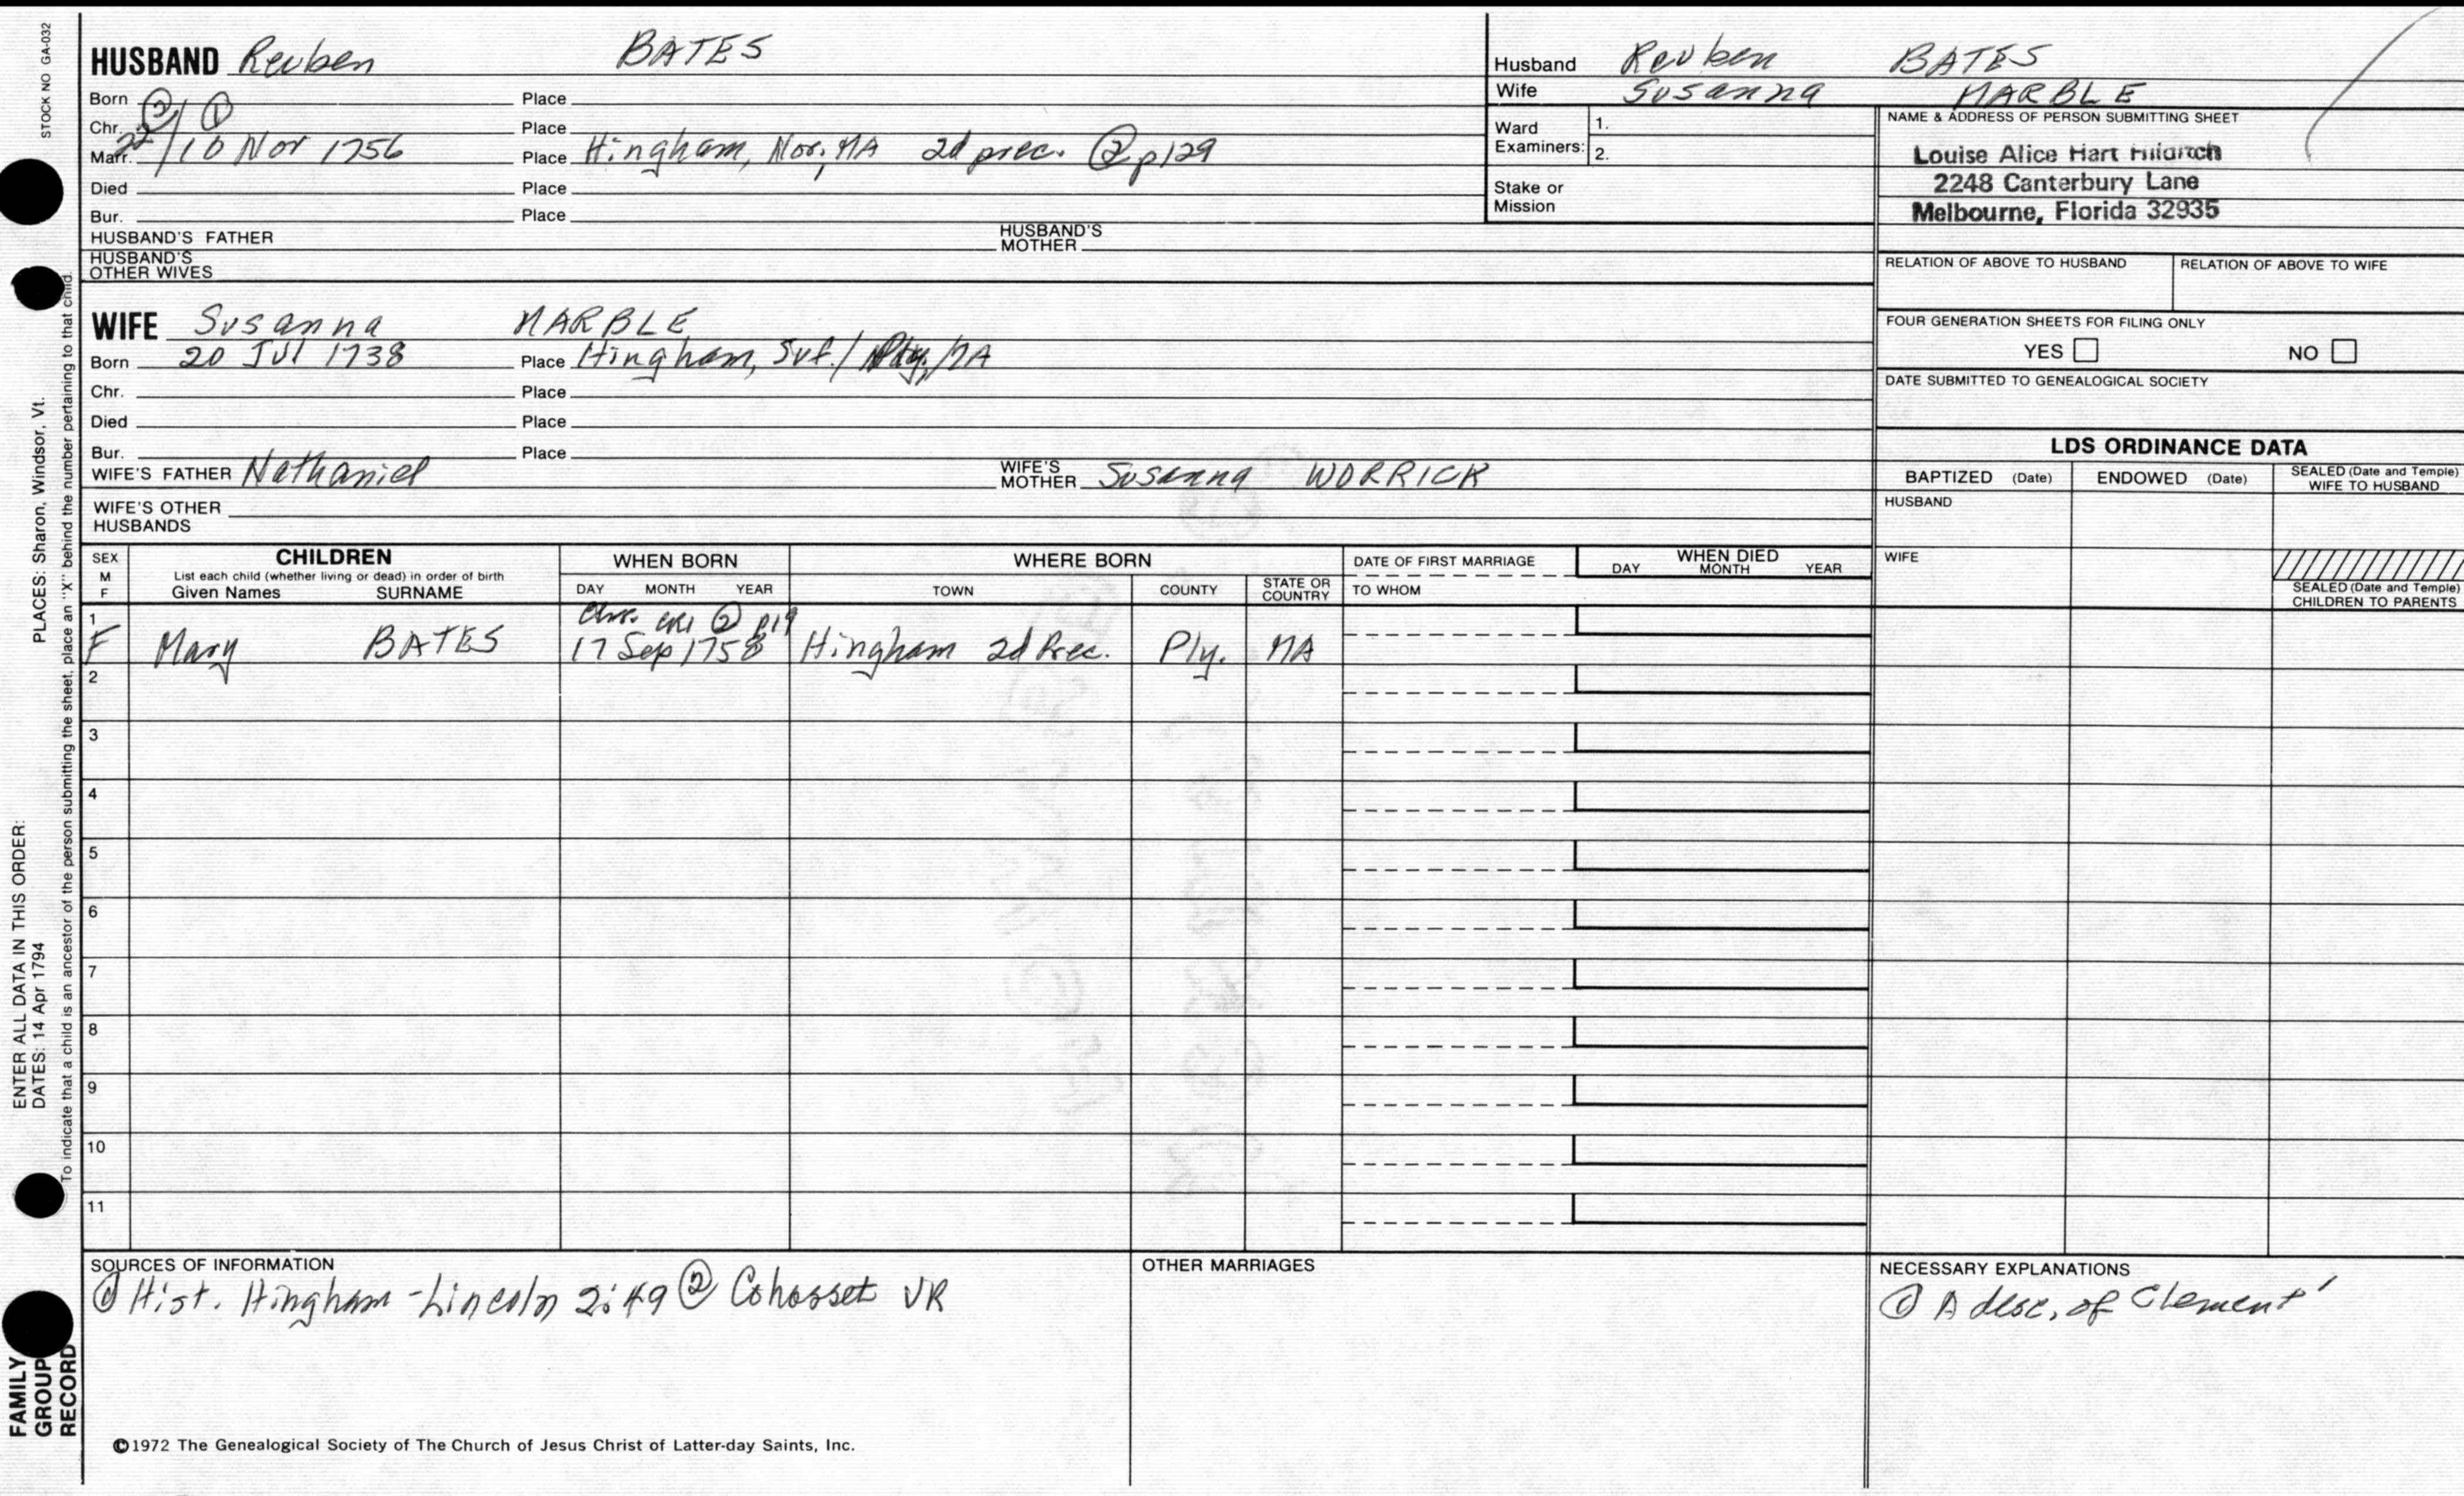 STOCK NO GA-032
HUSBAND Reuben BATES
Born ② ① Place
Chr. Place
Marr. 22/10 Nov 1756 Place Hingham, Nor, MA 2d prec. ② p129
Died Place
Bur. Place
HUSBAND'S FATHER HUSBAND'S MOTHER
HUSBAND'S OTHER WIVES
Husband Reuben BATES
Wife Susanna MARBLE
Ward Examiners: 1.
2.
Stake or Mission
NAME & ADDRESS OF PERSON SUBMITTING SHEET
Louise Alice Hart
2248 Canterbury Lane
Melbourne, Florida 32935
RELATION OF ABOVE TO HUSBAND RELATION OF ABOVE TO WIFE
FOUR GENERATION SHEETS FOR FILING ONLY
YES NO
DATE SUBMITTED TO GENEALOGICAL SOCIETY
WIFE Susanna MARBLE
Born 20 Jul 1738 Place Hingham, Suf./ MA
Chr. Place
Died Place
Bur. Place
WIFE'S FATHER Nathaniel WIFE'S MOTHER Susanna WORRICK
WIFE'S OTHER HUSBANDS
LDS ORDINANCE DATA
BAPTIZED (Date) ENDOWED (Date) SEALED (Date and Temple) WIFE TO HUSBAND
HUSBAND
WIFE
SEALED (Date and Temple) CHILDREN TO PARENTS
SEX M F
CHILDREN
List each child (whether living or dead) in order of birth
Given Names SURNAME
WHEN BORN
DAY MONTH YEAR
WHERE BORN
TOWN COUNTY STATE OR COUNTRY
DATE OF FIRST MARRIAGE
TO WHOM
WHEN DIED
DAY MONTH YEAR
1 Chr. ② p19
F Mary BATES 17 Sep 1758 Hingham 2d Prec. Ply. MA
2
3
4
5
6
7
8
9
10
11
SOURCES OF INFORMATION
① Hist. Hingham - Lincoln 2:49 ② Cohasset VR
OTHER MARRIAGES
NECESSARY EXPLANATIONS
① A desc. of Clement¹
©1972 The Genealogical Society of The Church of Jesus Christ of Latter-day Saints, Inc.
FAMILY
GROUP
RECORD
ENTER ALL DATA IN THIS ORDER:
DATES: 14 Apr 1794 PLACES: Sharon, Windsor, Vt.
To indicate that a child is an ancestor of the person submitting the sheet, place an "X" behind the number pertaining to that child.